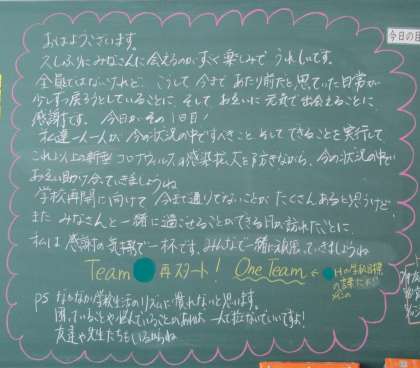 今日の目
おはようございます。
久しぶりにみなさんに会えるのがすごく楽しみで うれしいです。
全員ではないけれど、こうして今まで あたり前だと思っていた日常が
少しずつ戻ろうとしていることに、そして お互いに 元気で出会えることに、
感謝です。 今日がその1日目!
私達一人一人が 今の状況の中ですべきこと そして できることを 実行して
これ以上の新型コロナウィルスの感染拡大を防ぎながら、今の状況の中で
お互い助け合っていきましょうね
学校再開に向けて 今まで通りでないことが たくさんあると思うけど、
また みなさんと一緒に過ごせることのできる日が訪れたことに、
私は 感謝の気持ちで一杯です。みんなで一緒に頑張っていきましょうね
Team 再スタート! One Team ← Hの学級目標
の
PS なかなか学校生活のリズムに慣れないと思います。
困っていることや悩んでいることがあれば 一人で抱えないでいいですよ!
友達や先生たちもいるからね